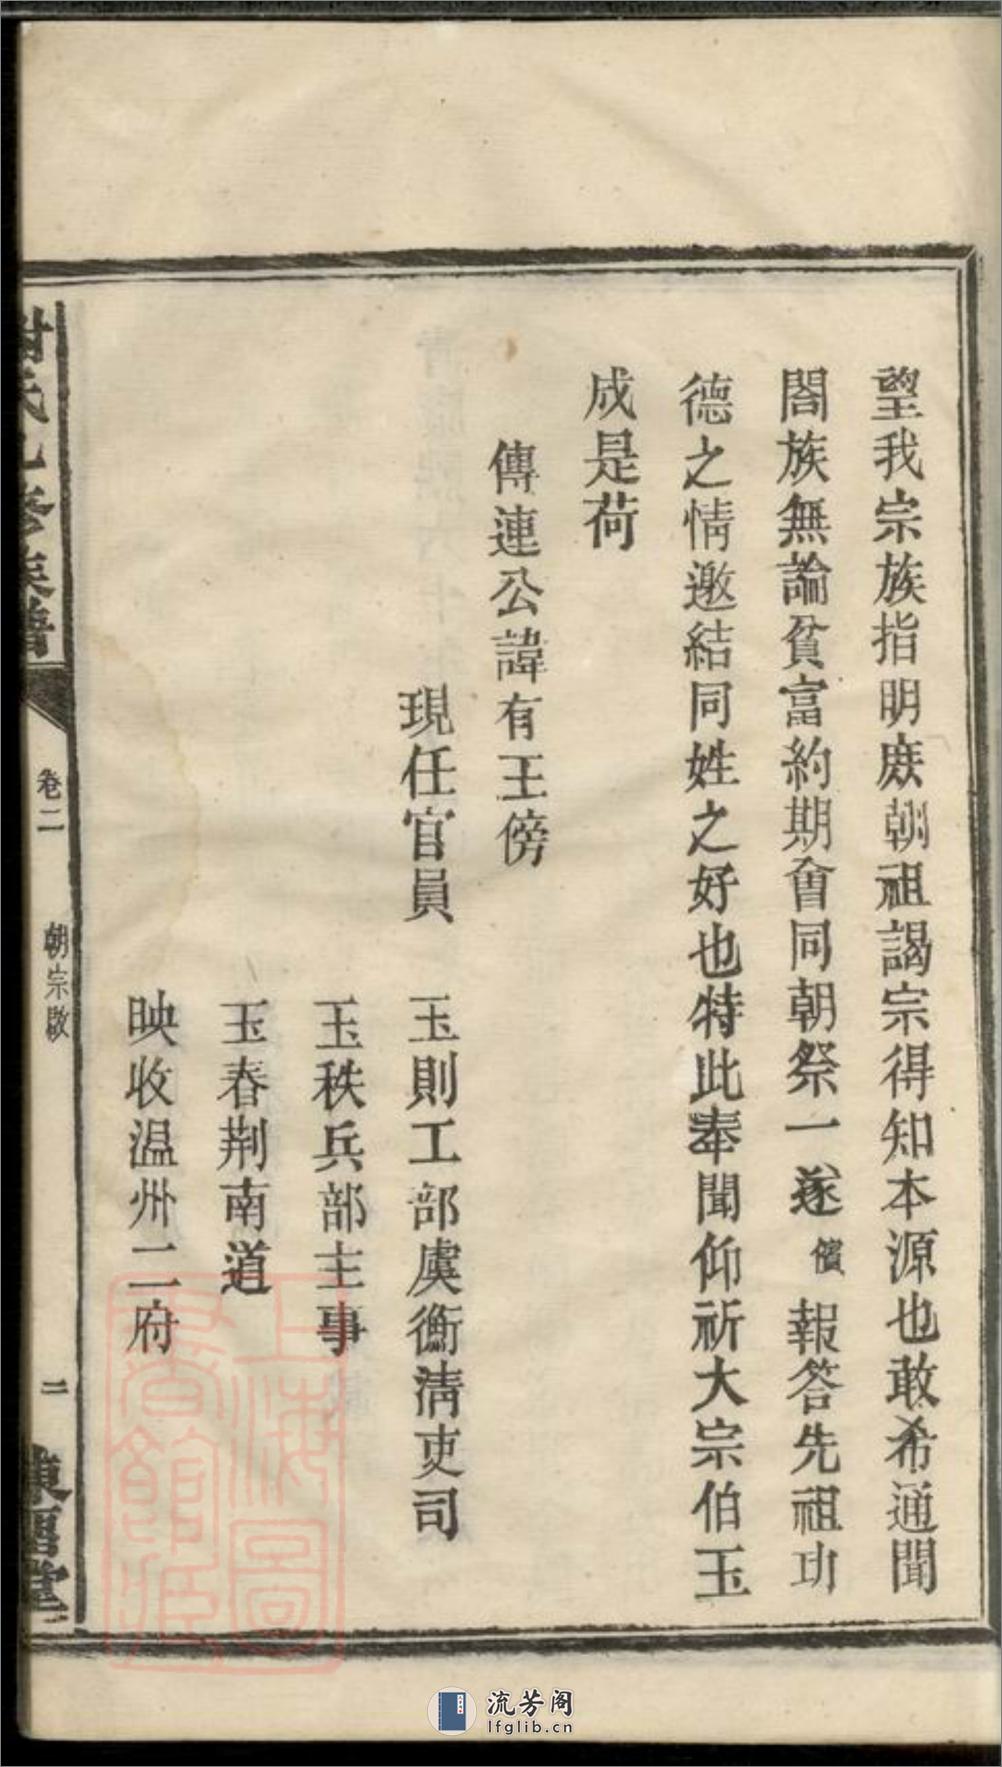 望我宗族指明庶朝祖謁宗得知本源也敢希通聞
閤族無論貧富約期會同朝祭一遂儐報答先祖功
德之情邀結同姓之好也特此奉聞仰祈大宗伯玉
成是荷
傳連公諱有王傍
現任官員 玉則工部虞衡清吏司
玉秩兵部主事
玉春荆南道
映收温州二府
氏 修族譜
卷二
朝宗啟
二
上海圖書館藏
流芳阁
lfglib.cn